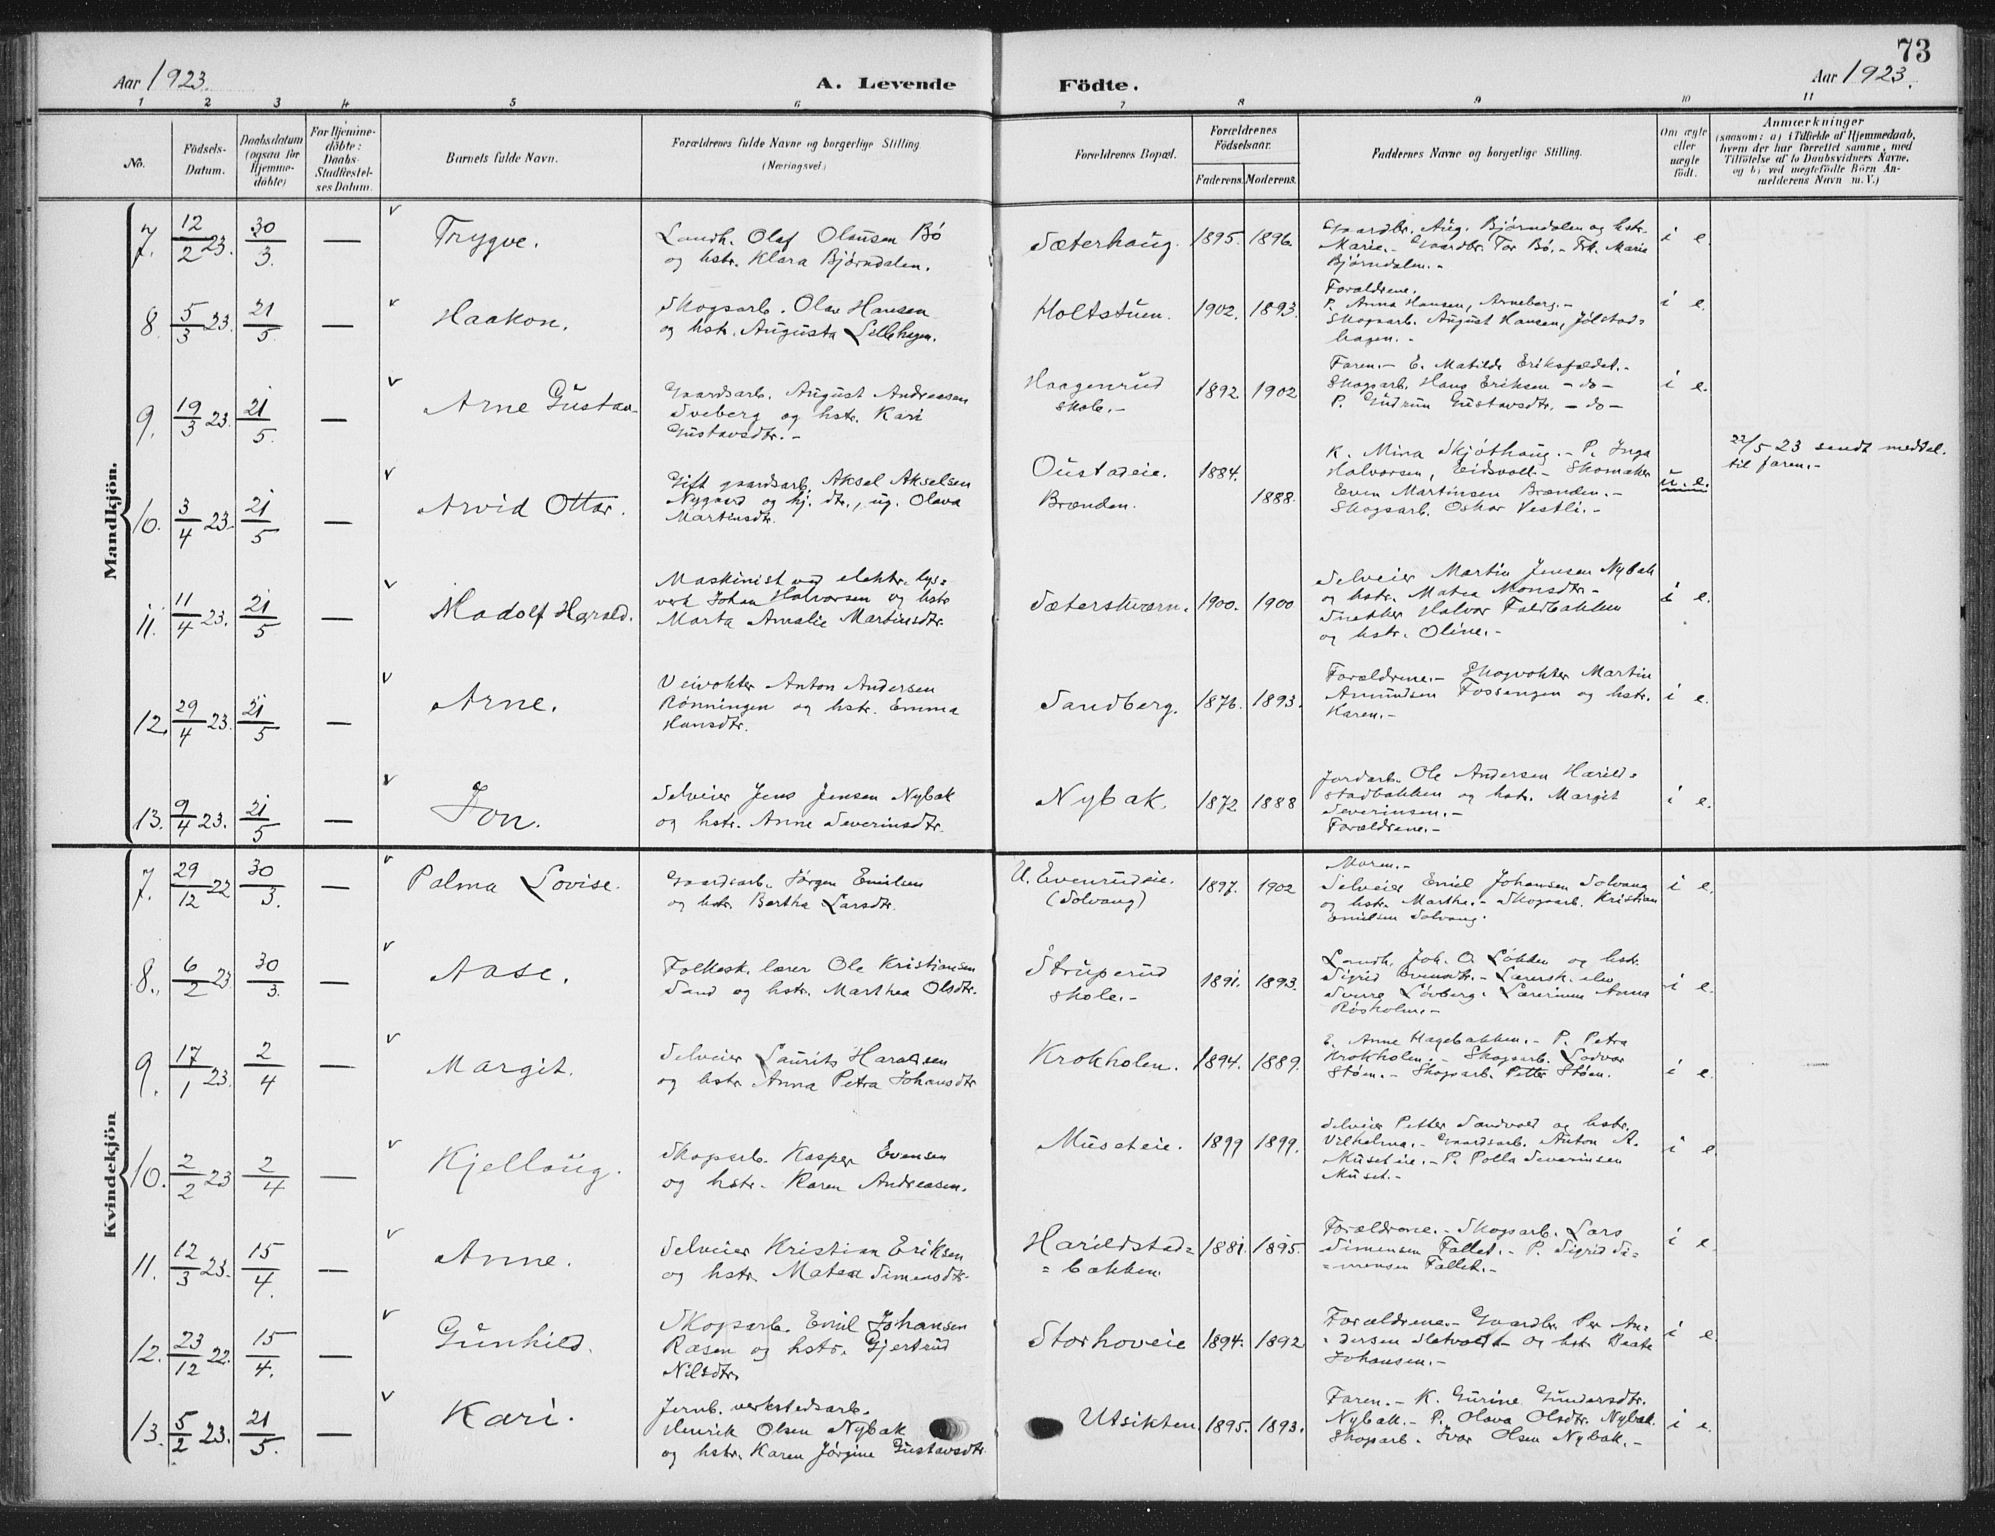 73
Aar 1923. A. Levende Fødte. Aar 1923.
1 2 3 4 5 6 7 8 9 10 11
No.
Fødsels-
Datum.
Daabsdatum
(ogsaa for
Hjemme-
døbte)
For Hjemme-
døbte:
Daabs-
Stadfæstel-
ses Datum.
Barnets fulde Navn.
Forældrenes fulde Navne og borgerlige Stilling
(Næringsvei)
Forældrenes Bopæl.
Forældrenes
Fødselsaar.
Faderens. Moderens.
Faddernes Navne og borgerlige Stilling.
Om ægte
eller
uægte
født.
Anmærkninger
(saasom: a) i Tilfælde af Hjemmedaab,
hvem der har forrettet samme, med
Tilføielse af to Daabsvidners Navne,
og b) ved uegtefødte Børn An-
melderens Navn m. V.)
Mandkjön.
7. 12/2 23. 30/3. — v Trygve.
Landh. Olaf Olausen Bø
og hstr. Klara Bjørndalen.
Sæterhaug. 1895. 1896.
Gaardbr. Aug. Bjørndalen og hstr.
Marie. - Gaardbr. Tor Bø. - Frk. Marie
Bjørndalen. -
i e.
8. 5/3 23. 21/5. — v Haakon.
Skogsarb. Olav Hansen
og hstr. Augusta Lillehagen.
Holtstuen. 1902. 1893.
Forældrene.
P. Anna Hansen, Arneberg. -
Skogsarb. August Hansen, Jølstad=
hagen. -
i e.
9. 19/3 23. 21/5. — v Arne Gustav
Gaardsarb. August Andreasen
Sveberg og hstr. Kari
Gustavsdtr. -
Haagenrud
skole. - 1892. 1902
Faren. - E. Matilde Eriksfældet. -
Skogsarb. Hans Eriksen - do -
P. Gudrun Gustavsdtr. - do -
i e.
10. 3/4 23. 21/5 — v Arvid Ottar.
Gift gaardsarb. Aksel Akselsen
Nygaard og hj. dtr., ug. Olava
Martinsdtr.
Oustadeie. 1884.
Brænden. 1888.
K. Mina Skjøthaug. - P. Inga
Halvorsen, Eidsvoll - Skomaker
Even Martinsen Brænden. -
Skogsarb. Oskar Vestli. -
u. e.
22/5 23 sendt meddel.
til faren. -
11. 11/4 23. 21/5 — v Madolf Harald.
Maskinist ved elektr. lys=
verk Johan Halvorsen og hstr
Marta Amalie Martinsdtr.
Sæterskværn. 1900. 1900
Selveier Martin Jensen Nybak
og hstr. Matea Monsdtr. -
Snekker Halvor Faldbakken
og hstr. Oline. -
i e.
12. 29/4 23. 21/5 — v Arne.
Veivokter Anton Andersen
Rønningen og hstr. Emma
Hansdtr.
Sandberg. 1876. 1893.
Forældrene. - Skogvokter Martin
Amundsen Fossengen og hstr.
Karen. -
i e.
13. 9/4 23. 21/5 — v Jon.
Selveier Jens Jensen Nybak
og hstr. Anne Severinsdtr.
Nybak. 1872 1888
Jordarb. Ole Andersen Harild=
stadbakken og hstr. Margit
Severinsen. -
Forældrene. -
i e.
Kvindekjön
7. 29/12 22 30/3. — v Palma Lovise.
Gaardsarb. Jørgen Emilsen
og hstr Bertha Larsdtr.
U. Evenrudeie.
(Solvang) 1897. 1902
Moren. -
Selveier Emil Johansen Solvang
og hstr. Marthe. - Skogsarb. Kristian
Emilsen Solvang.
i e.
8. 6/2 23 30/3. — v Aase.
Folkesk. lærer Ole Kristiansen
Sand og hstr. Marthea Olsdtr.
Struperud
skole. - 1891. 1893.
Landh. Joh. O. Løkken og hstr.
Sigrid Evensdtr. - Lærersk. elev
Sverre Løvberg. Lærerinne Anna
Røsholm. -
i e.
9. 17/1 23. 2/4 — v Margit.
Selveier Laurits Haraldsen
og hstr. Anna Petra Johansdtr
Krokholen. 1894. 1889.
E. Anne Hagebakken. - P. Petra
Krokholen. - Skogsarb. Lodvar
Støen. - Skogsarb. Petter Støen.
i e.
10. 2/2 23 2/4 — v Kjellaug.
Skogsarb. Kasper Evensen
og hstr. Karen Andreasen.
Museteie. 1899 1899.
Selveier Petter Sandvold og hstr.
Vilhelma. - Gaardsarb. Anton A.
Museteie. - P. Polla Severinsen
Muset. -
i e.
11. 12/3 23. 15/4. — v Anne.
Selveier Kristian Eriksen
og hstr. Matea Simensdtr.
Harildstad=
=bakken. 1881. 1895.
Forældrene. - Skogsarb. Lars
Simensen Fallet. - P. Sigrid Si=
=mensen Fallet. -
i e.
12. 23/12 22. 15/4. — v Gunhild.
Skogsarb. Emil Johansen
Rasen og hstr. Gjertrud
Nilsdtr.
Storhoveie 1894. 1892
Forældrene. - Gaardbr. Per An=
=dersen Sletvoldt og hstr. Beate
Johansen. -
i e
13. 5/2 23. 21/5. — v Kari.
Jernb. verkstedsarb.
Henrik Olsen Nybak
og hstr. Karen Jørgine Gustavsdtr.
Utsikten. 1895. 1893.
Faren. - K. Gurine Gundersdtr.
Nybak. - P. Olava Olsdtr. Nybak.
Skogsarb. Ivar Olsen Nybak. -
i e.